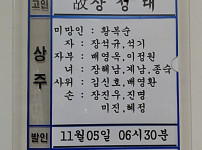 고인 故장성태
상주
미망인 : 황복순
자 : 장석규,석기
자부 : 배영옥,이정원
녀 : 장해남,계남,종숙
사위 : 김신호,배영환
손 : 장진우,진명
미진,혜정
발인 11월05일 06시30분